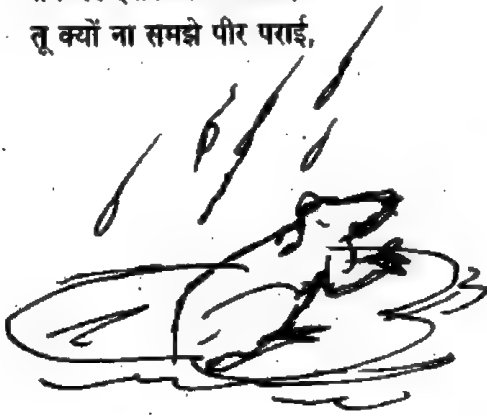 तू क्यों ना समझे पीर पराई,